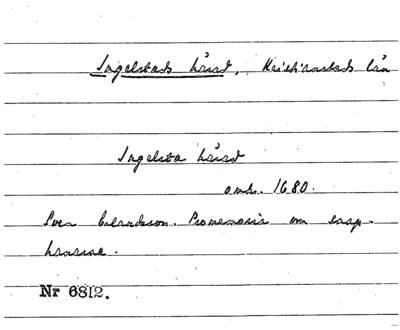 Ingelstads härad, Kristianstads län
Ingelsta härad
omkr. 1680.
Sven Promemoria om
Nr 6812.